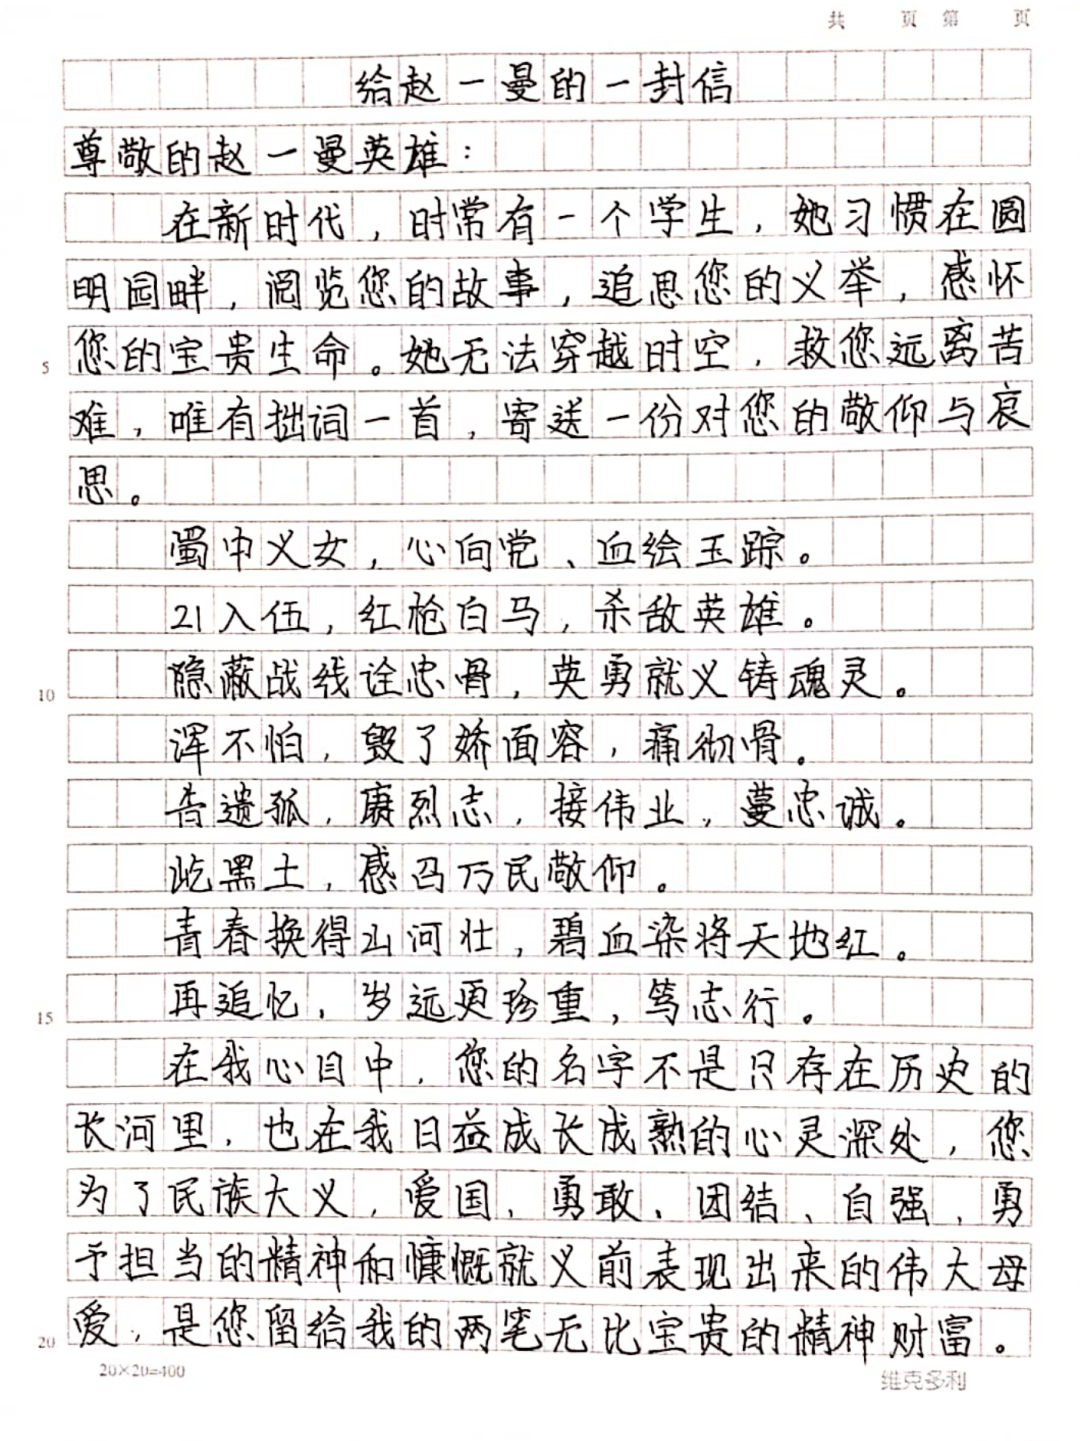 共 页 第 页
给赵一曼的一封信
尊敬的赵一曼英雄：
在新时代，时常有一个学生，她习惯在圆
明园畔，阅览您的故事，追思您的义举，感怀
您的宝贵生命。她无法穿越时空，救您远离苦
5
难，唯有拙词一首，寄送一份对您的敬仰与哀
思。
蜀中义女，心向党、血绘玉踪。
21入伍，红枪白马，杀敌英雄。
隐蔽战线诠忠骨，英勇就义铸魂灵。
10
浑不怕，毁了娇面容，痛彻骨。
告遗孤，赓烈志，接伟业，蔓忠诚。
屹黑土，感召万民敬仰。
青春换得山河壮，碧血染将天地红。
再追忆，岁远更珍重，笃志行。
15
在我心目中，您的名字不是只存在历史的
长河里，也在我日益成长成熟的心灵深处，您
为了民族大义，爱国、勇敢、团结、自强，勇
于担当的精神和慷慨就义前表现出来的伟大母
爱，是您留给我的两笔无比宝贵的精神财富。
20
20×20=400
维克多利